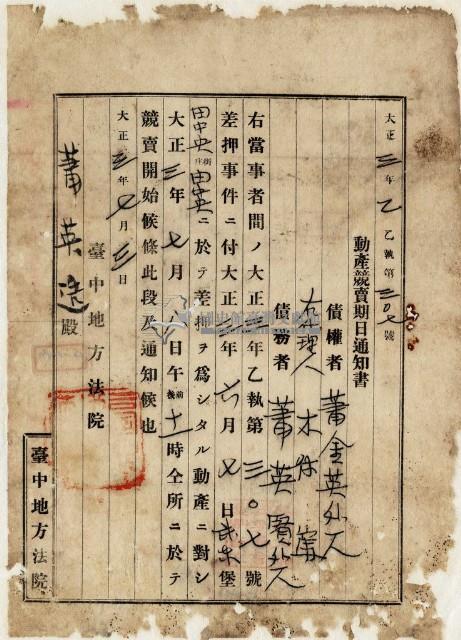 大正三年乙 乙執第三〇七號
動產競賣期日通知書
債權者 蕭金英外一人
右代理人 木 
債務者 蕭英賢外一人
右當事者間ノ大正三年乙執第三〇七號
差押事件ニ付大正三年六月 日武東堡
田中央街庄田英ニ於テ差押ヲ爲シタル動產ニ對シ
大正三年七月八日午前後十一時仝所ニ於テ
競賣開始候條此段及通知候也
大正三年七月三日
臺中地方法院
蕭英 殿
臺中地方法院